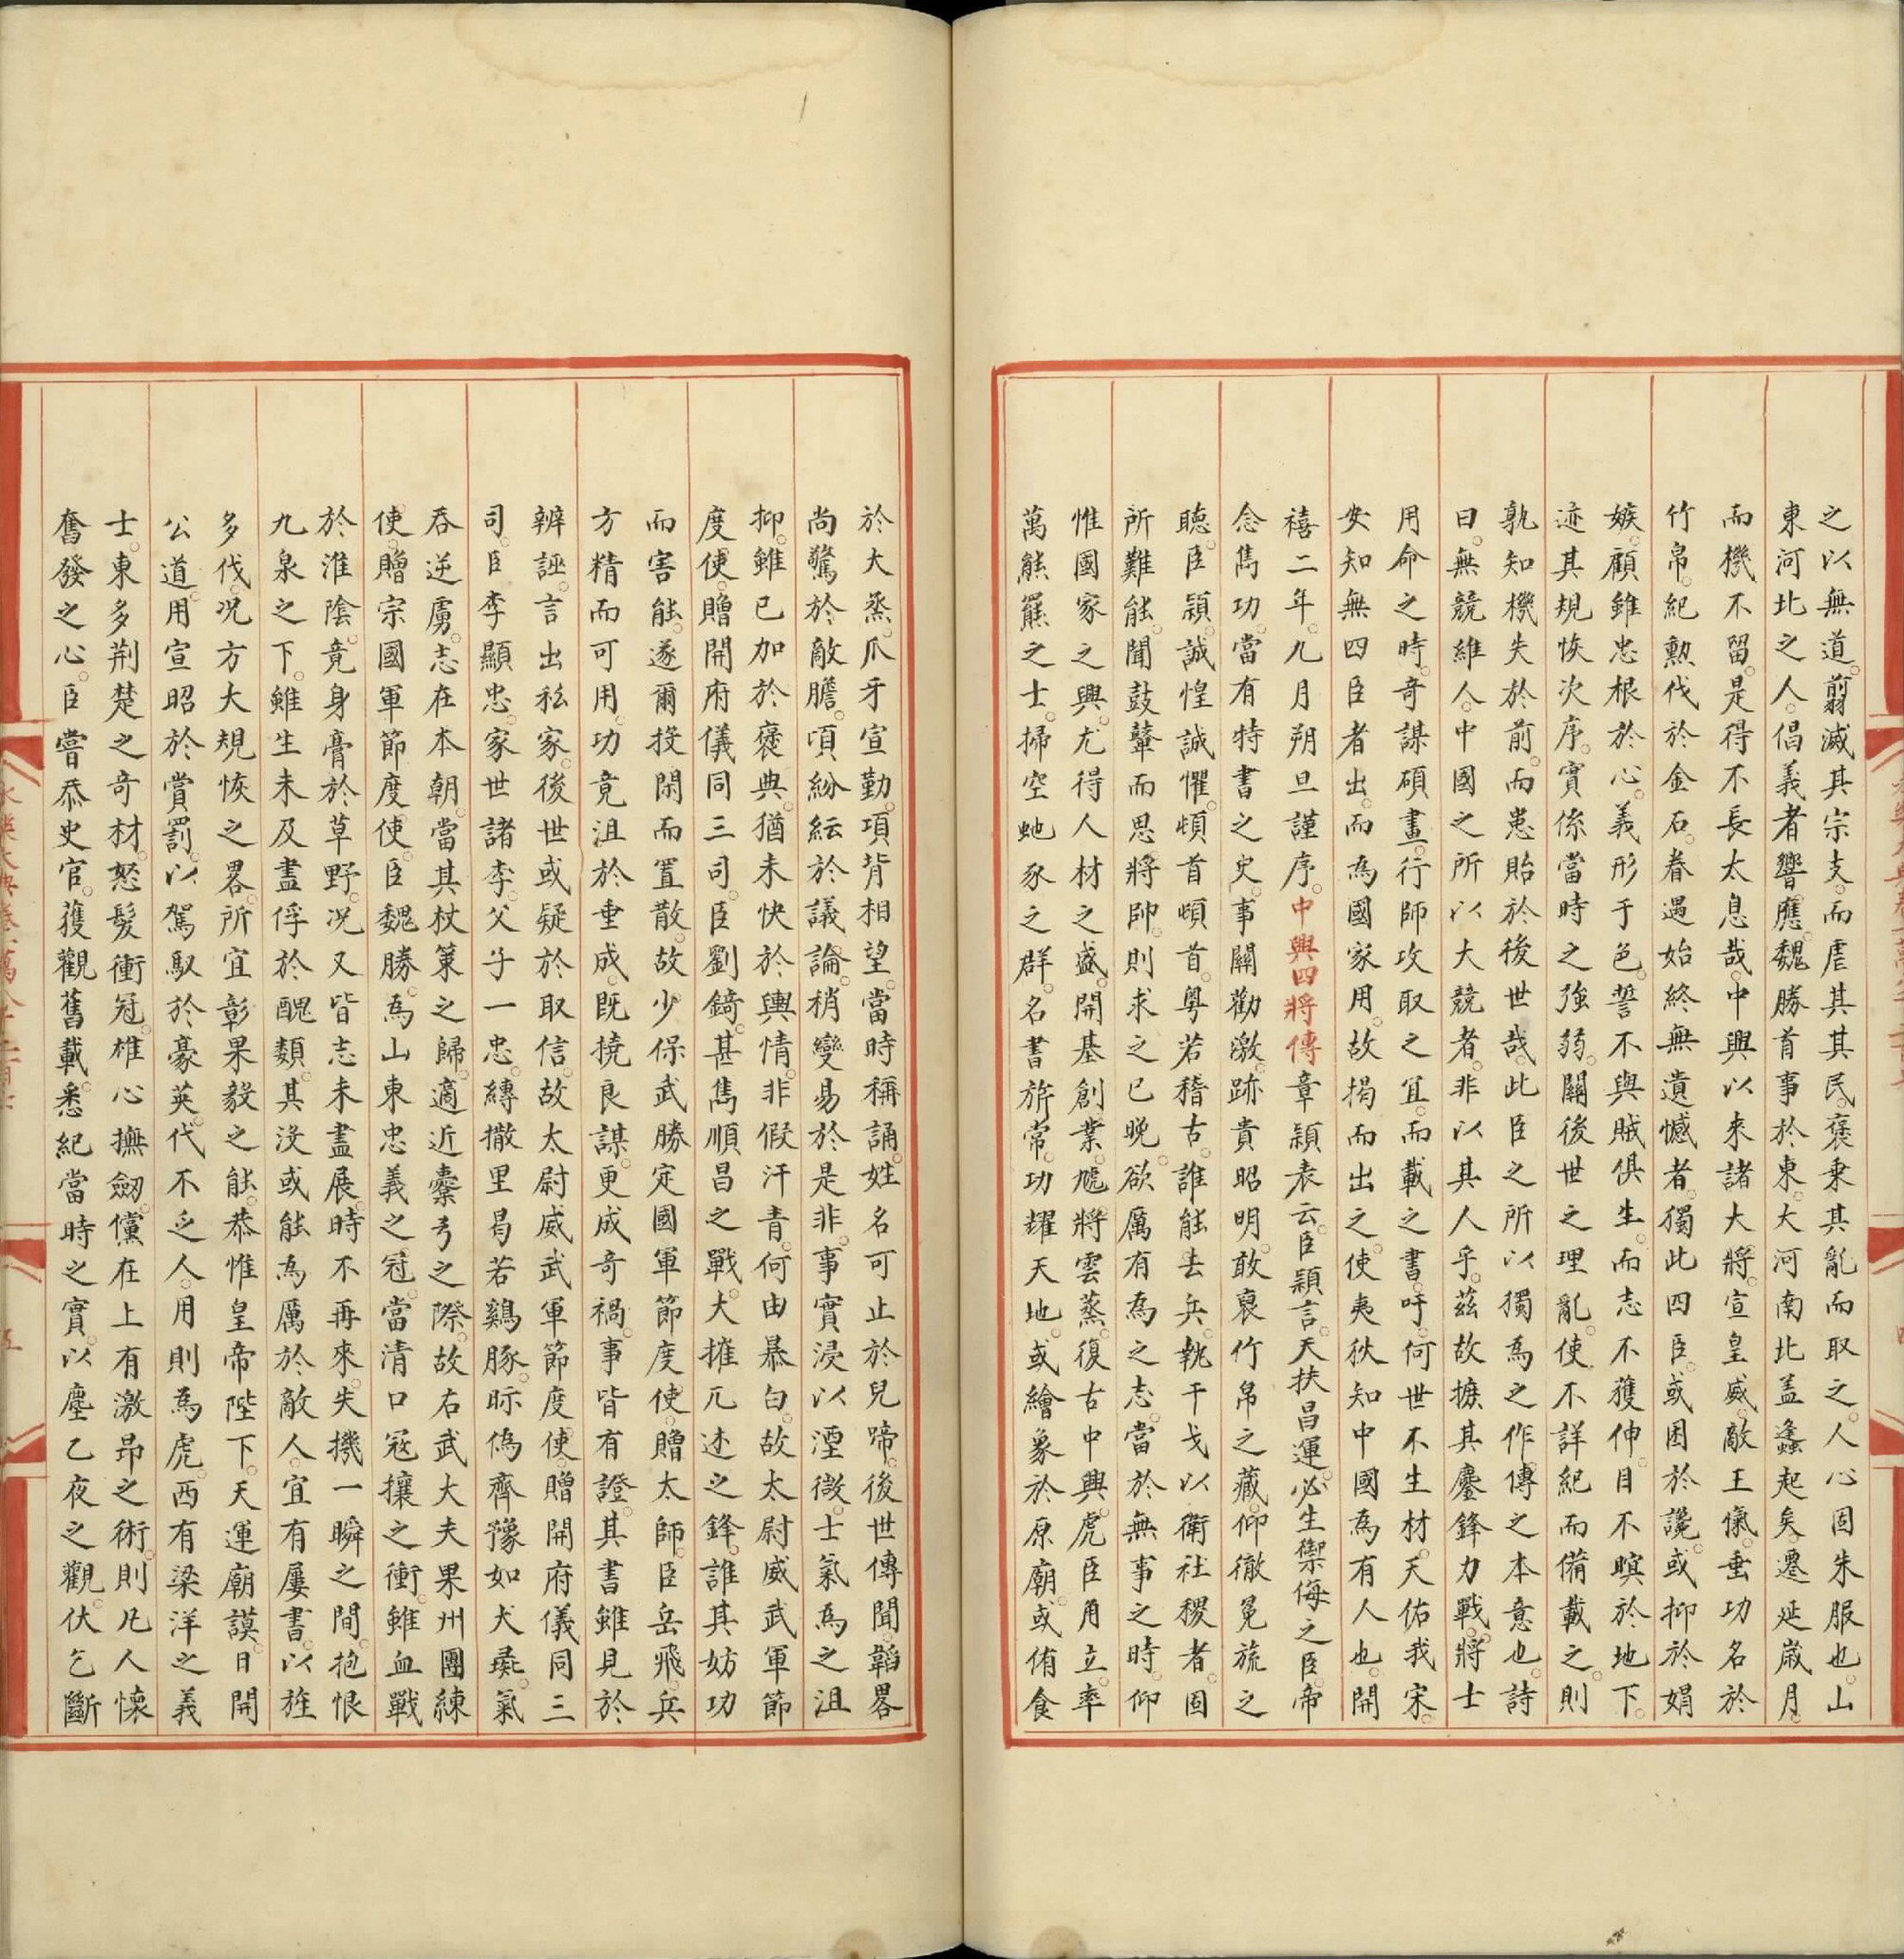 之以無道。翦滅其宗支。而虐其其民。褒秉其亂而取之。人心固朱服也。山
東河北之人。倡義者響應。魏勝首事於東。大河南北盖蠭起矣。遷延歲月。
而機不留。是得不長太息哉。中興以來諸大將。宣皇威。敵王愾。垂功名於
竹帛。紀勲伐於金石。眷遇始終無遺憾者。獨此四臣。或困於讒。或抑於娟
嫉。顧雖忠根於心。義形于色。誓不與賊俱生。而志不獲伸。目不瞑於地下。
迹其規恢次序。實係當時之強弱。關後世之理亂。使不詳紀而備載之。則
孰知機失於前。而患貽於後世哉。此臣之所以獨為之作傳之本意也。詩
曰。無競維人。中國之所以大競者。非以其人乎。茲故摭其鏖鋒力戰。將士
用命之時。奇謀碩畫。行師攻取之宜。而載之書。吁。何世不生材。天佑我宋。
安知無四臣者出。而為國家用。故揭而出之。使夷狄知中國為有人也。開
禧二年。九月朔旦謹序。中興四將傳章頴表云。臣頴言。天扶昌運。必生禦侮之臣。帝
念雋功。當有特書之史。事關勸激。跡貴昭明。敢裒竹帛之藏。仰徹冕旒之
聽。臣頴。誠惶誠懼。頓首頓首。粤若稽古。誰能去兵。執干戈以衛社稷者。固
所難能。聞鼓鼙而思將帥。則求之已晚。欲厲有為之志。當於無事之時。仰
惟國家之興。尤得人材之盛。開基創業。虓將雲蒸。復古中興。虎臣角立。率
萬熊羆之士。掃空虵豕之群。名書旂常。功耀天地。或繪象於原廟。或侑食
於大烝。爪牙宣勤。項背相望。當時稱誦。姓名可止於兒啼。後世傳聞。韜畧
尚驚於敵膽。頃紛紜於議論。稍變易於是非。事實浸以湮微。士氣為之沮
抑。雖已加於褒典。猶未快於輿情。非假汗青。何由暴白。故太尉威武軍節
度使。贈開府儀同三司。臣劉錡。甚雋順昌之戰。大摧兀朮之鋒。誰其妨功
而害能。遂爾投閑而置散。故少保武勝定國軍節度使。贈太師。臣岳飛。兵
方精而可用。功竟沮於垂成。既撓良謀。更成奇禍。事皆有證。其書雖見於
辨誣。言出私家。後世或疑於取信。故太尉威武軍節度使。贈開府儀同三
司。臣李顯忠。家世諸李。父子一忠。縳撒里曷若鷄豚。眎偽齊豫如犬彘。氣
吞逆虜。志在本朝。當其杖策之歸。適近櫜弓之際。故右武大夫果州團練
使。贈宗國軍節度使。臣魏勝。為山東忠義之冠。當清口寇攘之衝。雖血戰
於淮陰。竟身膏於草野。况又皆志未盡展。時不再來。失機一瞬之間。抱恨
九泉之下。雖生未及盡俘於醜類。其沒或能為厲於敵人。宜有屢書。以旌
多伐。况方大規恢之畧。所宜彰果毅之能。恭惟皇帝陛下。天運廟謨。日開
公道。用宣昭於賞罰。以駕馭於豪英。代不乏人。用則為虎。西有梁洋之義
士。東多荆楚之奇材。怒髮衝冠。雄心撫劒。儻在上有激昂之術。則凡人懷
奮發之心。臣嘗忝史官。獲觀舊載。悉紀當時之實。以塵乙夜之觀。伏乞斷